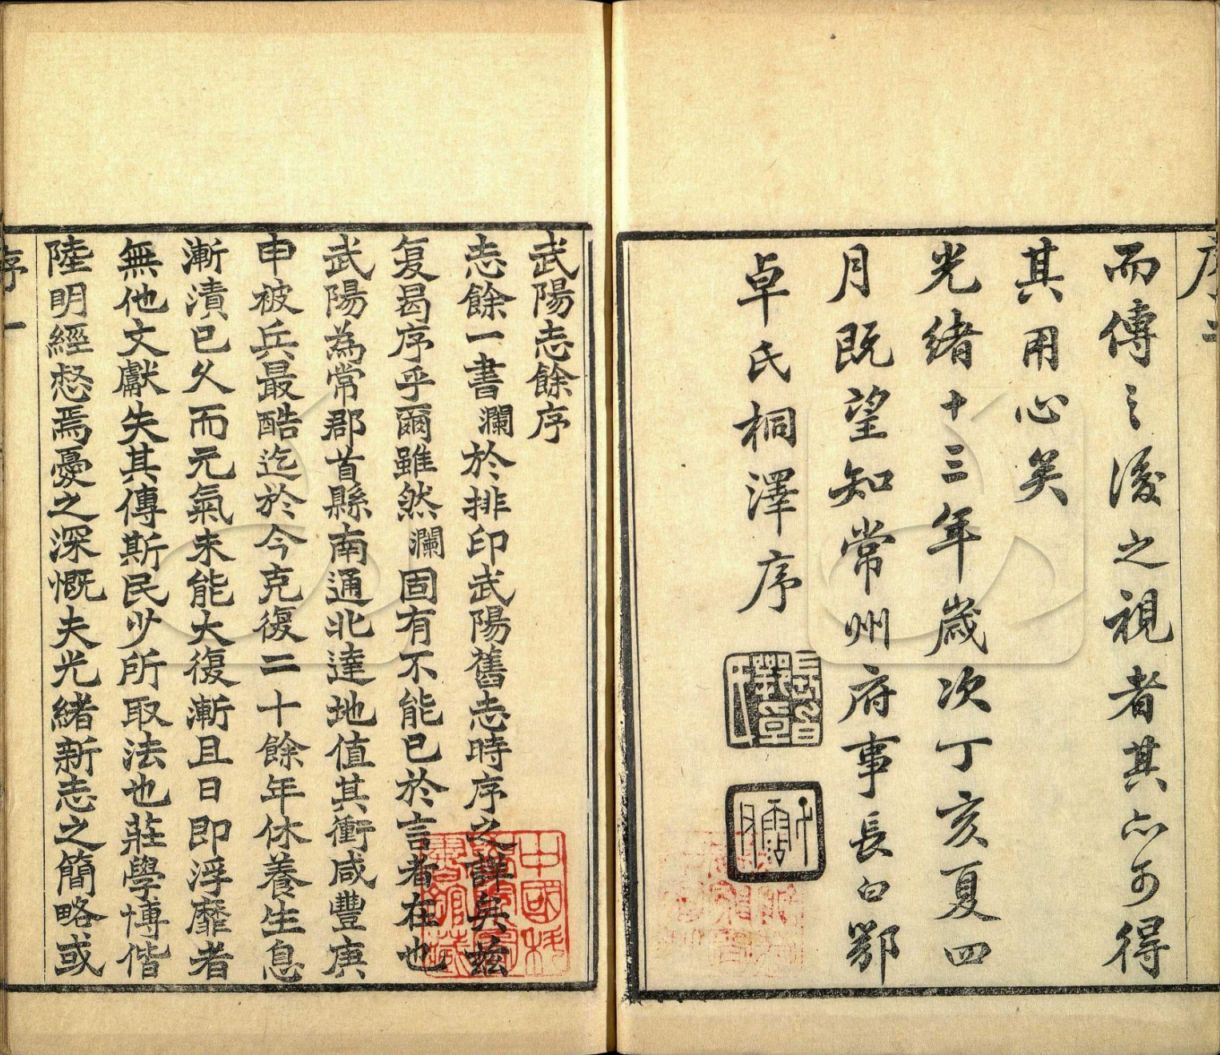 而傳之後之視者其亦可得
其用心矣
光緒十三年歲次丁亥夏四
月既望知常州府事長白鄂
卓氏桐澤序
武陽志餘序
志餘一書瀾於排印武陽舊志時序之詳矣茲
复曷序乎爾雖然瀾固有不能已於言者在也
武陽為常郡首縣南通北達地值其衝咸豐庚
申被兵最酷迄於今克復二十餘年休養生息
漸漬已久而元氣未能大復漸且日即浮靡者
無他文獻失其傳斯民少所取法也莊學博偕
陸明經惄焉憂之深慨夫光緒新志之簡略或
序 一